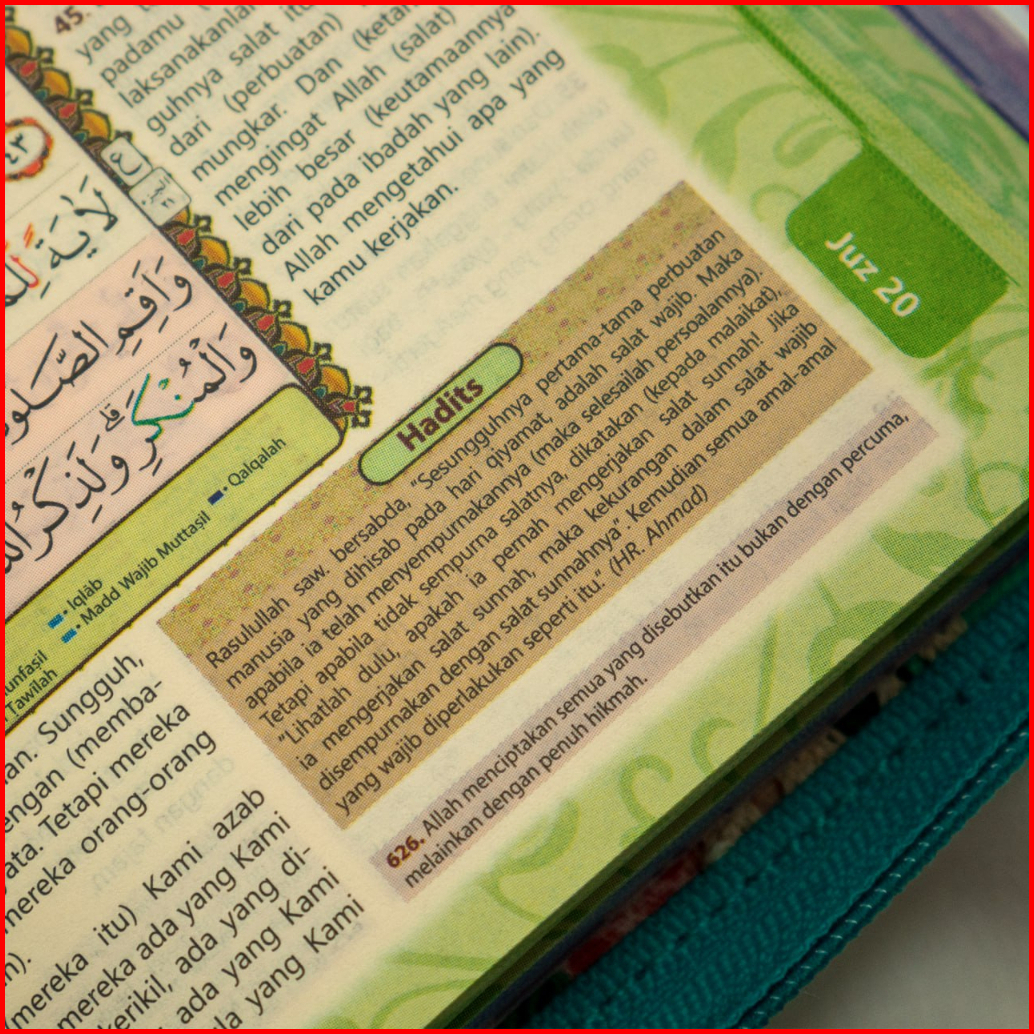 45.
yang
padamu
laksanakanlah
guhnya salat itu
dari (perbuatan)
mungkar. Dan (ketah
mengingat Allah (salat)
lebih besar (keutamaannya
dari pada ibadah yang lain).
Allah mengetahui apa yang
kamu kerjakan.
٤٣
ع
لَاٰيَةً
وَاَقِمِ الصَّلٰو
وَالْمُنْكَرِ ۗ وَلَذِكْرُ
Iqlāb
Qalqalah
Madd Wajib Muttaṣil
unfaṣil
Tawilah
Juz 20
Hadits
Rasulullah saw. bersabda, "Sesungguhnya pertama-tama perbuatan
manusia yang dihisab pada hari qiyamat, adalah salat wajib. Maka
apabila ia telah menyempurnakannya (maka selesailah persoalannya).
Tetapi apabila tidak sempurna salatnya, dikatakan (kepada malaikat),
"Lihatlah dulu, apakah ia pernah mengerjakan salat sunnah! Jika
ia mengerjakan salat sunnah, maka kekurangan dalam salat wajib
disempurnakan dengan salat sunnahnya". Kemudian semua amal-amal
yang wajib diperlakukan seperti itu." (HR. Ahmad)
626. Allah menciptakan semua yang disebutkan itu bukan dengan percuma,
melainkan dengan penuh hikmah.
an. Sungguh,
engan (memba-
ata. Tetapi mereka
mereka orang-orang
n).
mereka itu) Kami azab
mereka ada yang Kami
kerikil, ada yang di-
ada yang Kami
la yang Kami